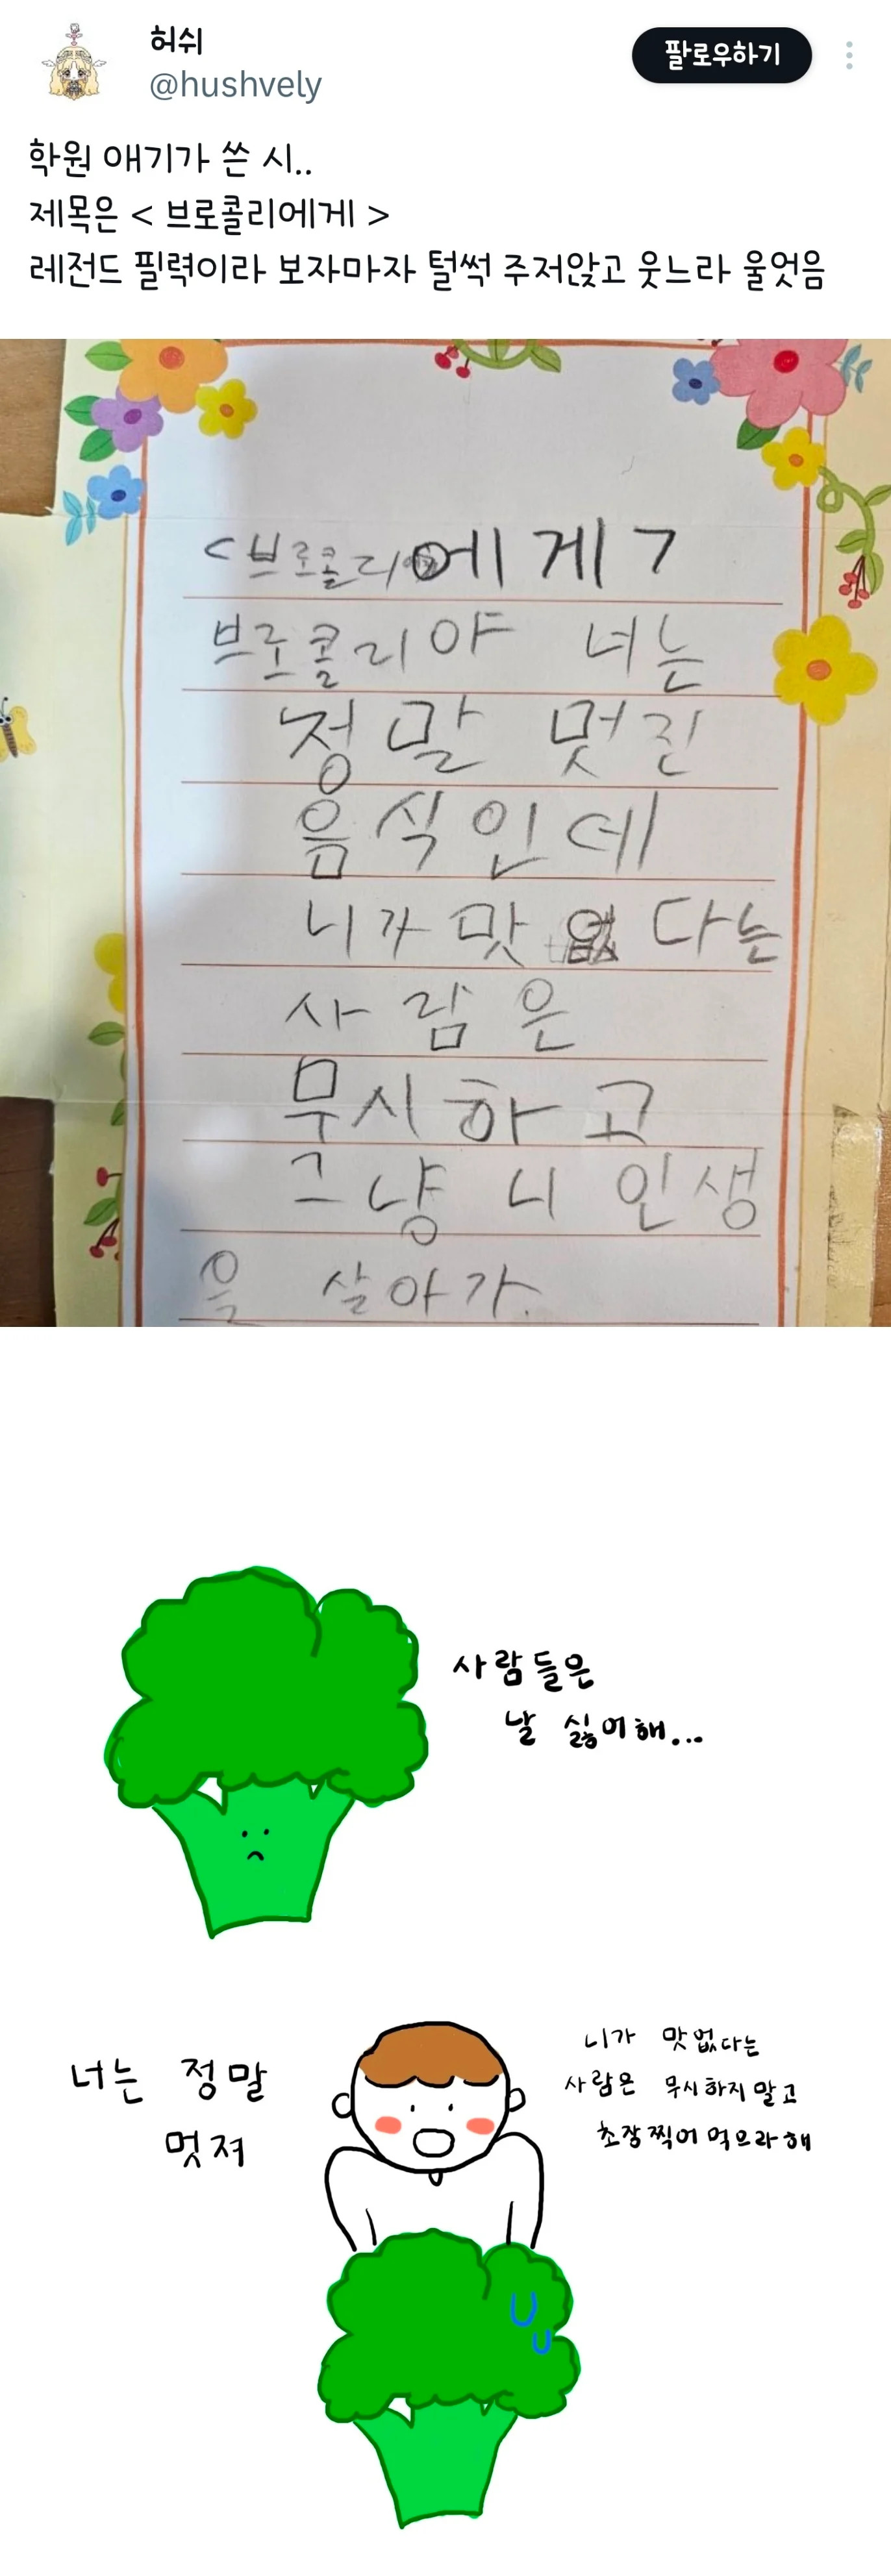 허쉬
팔로우하기
@hushvely
학원 애기가 쓴 시..
제목은 < 브로콜리에게 >
레전드 필력이라 보자마자 털썩 주저앉고 웃느라 울엇음
<브로콜리에게>
브로콜리야 너는
정말 멋진
음식인데
니가 맛없다는
사람은
무시하고
그냥 니 인생
을 살아가.
사람들은
날 싫어해...
너는 정말
멋져
니가 맛없다는
사람은 무시하지 말고
초장찍어 먹으라 해